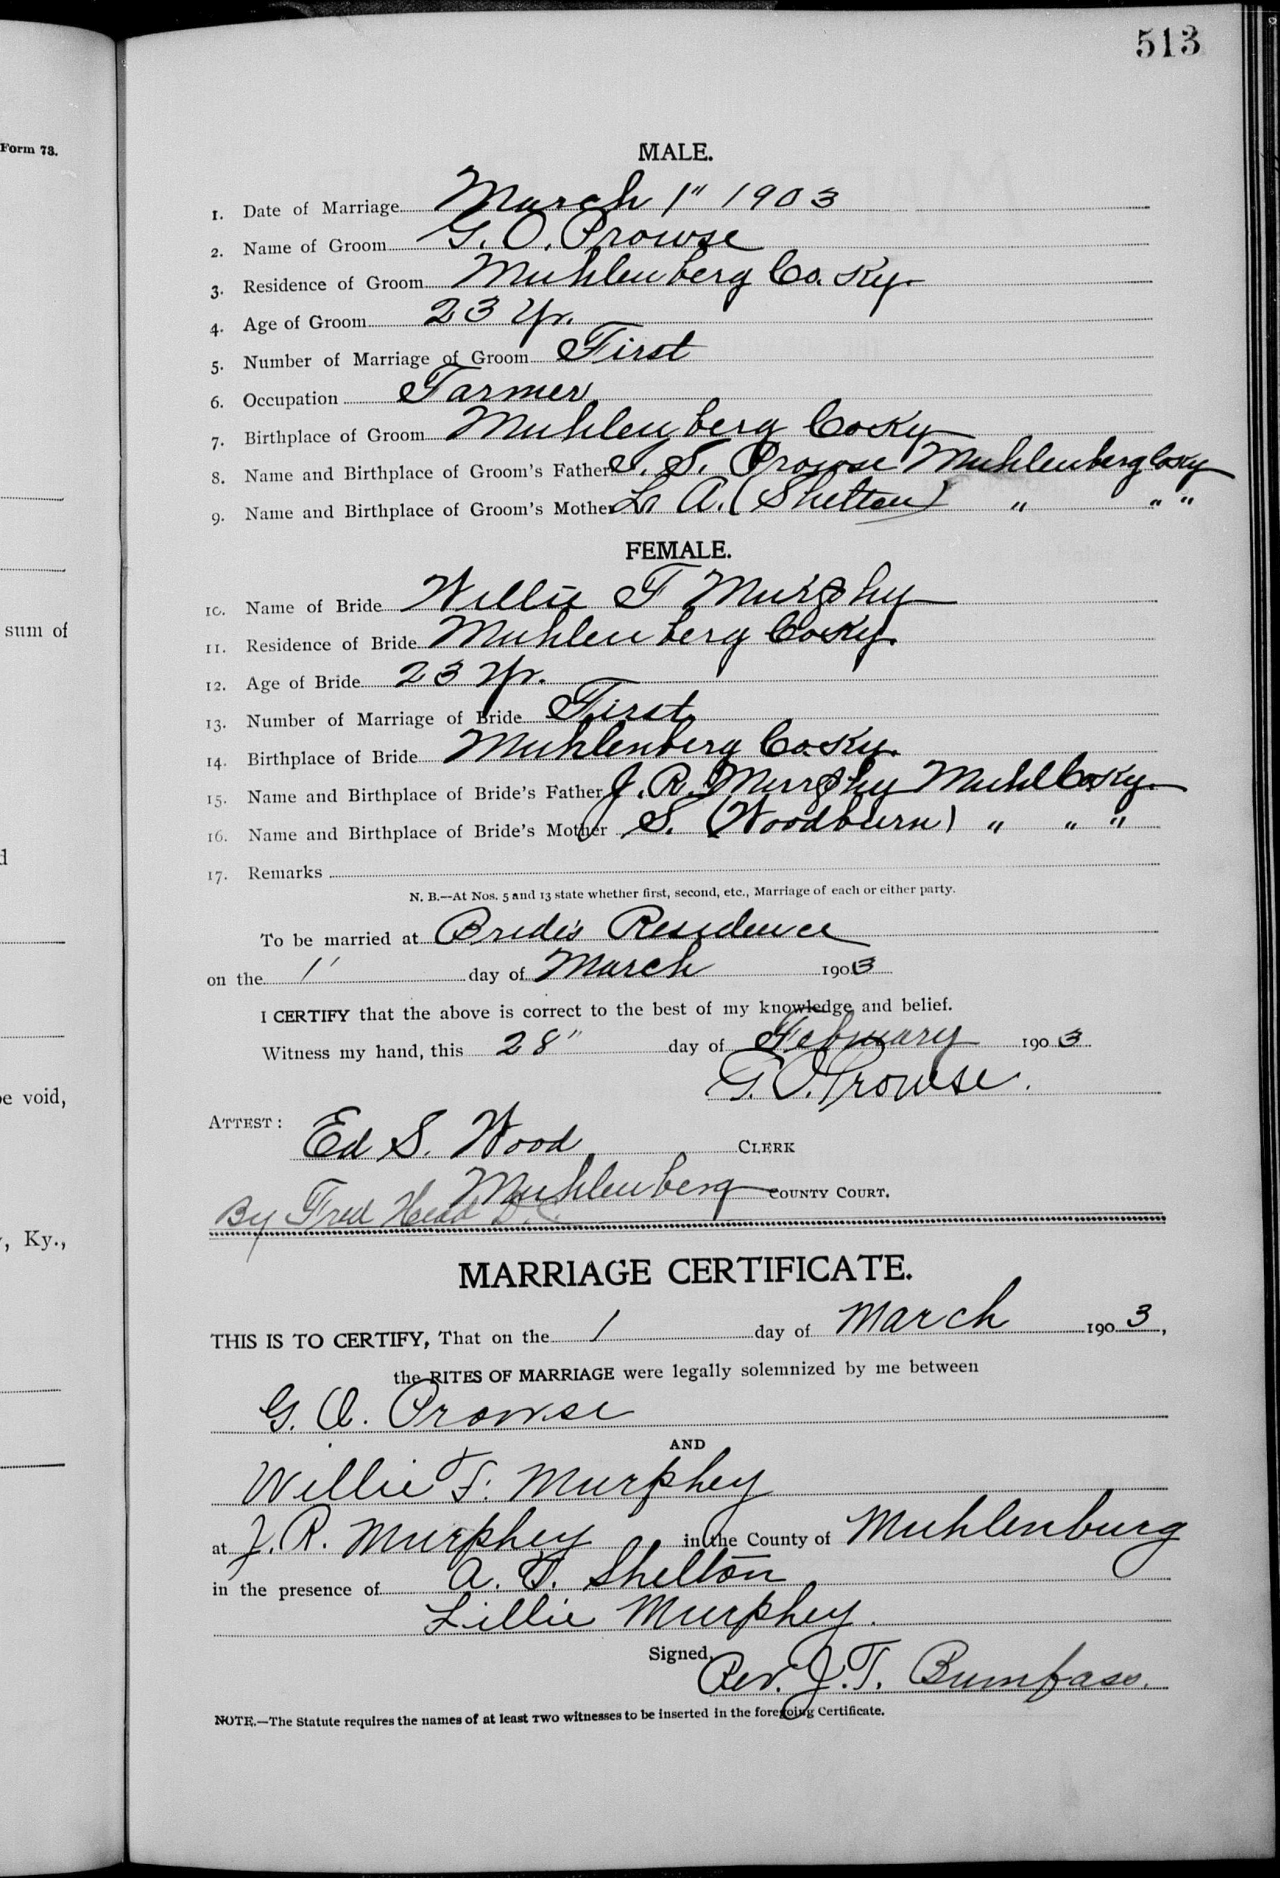 513
Form 73.
MALE.
1. Date of Marriage March 1" 1903
2. Name of Groom G. O. Prowse
3. Residence of Groom Muhlenberg Co. Ky.
4. Age of Groom 23 Yr.
5. Number of Marriage of Groom First
6. Occupation Farmer
7. Birthplace of Groom Muhlenberg Co Ky
8. Name and Birthplace of Groom's Father S. Prowse Muhlenberg Co Ky
9. Name and Birthplace of Groom's Mother A. (Shelton) " " "
FEMALE.
10. Name of Bride Willie F Murphy
sum of
11. Residence of Bride Muhlenberg Co Ky.
12. Age of Bride 23 Yr.
13. Number of Marriage of Bride First
14. Birthplace of Bride Muhlenberg Co. Ky.
15. Name and Birthplace of Bride's Father J. R. Murphy Muhl Co Ky.
16. Name and Birthplace of Bride's Mother S. (Woodburn) " " "
d
17. Remarks
N. B.—At Nos. 5 and 13 state whether first, second, etc., Marriage of each or either party.
To be married at Bride's Residence
on the 1' day of March 1903
I CERTIFY that the above is correct to the best of my knowledge and belief.
Witness my hand, this 28" day of February 1903
G. O. Prowse.
e void,
ATTEST: Ed S. Wood CLERK
Muhlenberg COUNTY COURT.
By Fred Head D. C.
, Ky.,
MARRIAGE CERTIFICATE.
THIS IS TO CERTIFY, That on the 1 day of March 1903,
the RITES OF MARRIAGE were legally solemnized by me between
G. O. Prowse
AND
Willie F. Murphey
at J. R. Murphey in the County of Muhlenburg
in the presence of A. Shelton
Lillie Murphey.
Signed, Rev. J. T. Bumpass.
NOTE.—The Statute requires the names of at least TWO witnesses to be inserted in the foregoing Certificate.